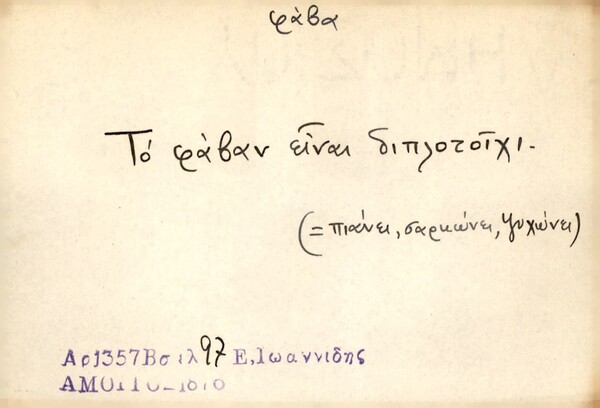 φάβα
Τό φάβαν εἶναι διπλοτοῖχι.
(= πιάνει, σαρκώνει, ψυχώνει)
Αρ1357Βσιλ97 Ε,Ιωαννιδης